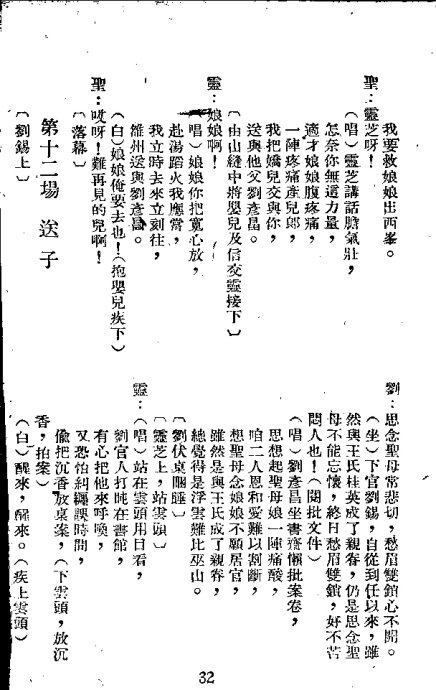 我要救娘娘出西峯。
聖：靈芝呀！
（唱）靈芝講話膽氣壯，
怎奈你無這力量，
適才娘娘腹疼痛，
一陣疼痛產兒郎，
我把嬌兒交與你，
送與他父劉彥昌。
〔由山縫中將嬰兒及信交靈接下〕
靈：娘娘啊！
（唱）娘娘你把寬心放，
赴湯蹈火我應當，
我立時去來立刻往，
雒州送與劉彥昌。
（白）娘娘俺要去也！（抱嬰兒疾下）
聖：哎呀！難再見的兒啊！
〔落幕〕
第十二場 送子
〔劉錫上〕
劉：思念聖母常悲切，愁眉雙鎖心不開。
（坐）下官劉錫，自從到任以來，雖
然與王氏桂英成了親眷，仍是思念聖
母不能忘懷，終日愁眉雙鎖，好不苦
悶人也！（閱批文件）
（唱）劉彥昌坐書齋懶批案卷，
思想起聖母娘一陣痛酸，
咱二人恩和愛難以割斷，
想聖母念娘娘不願居官，
雖然是與王氏成了親眷，
總覺得是浮雲難比巫山。
〔劉伏桌瞌睡〕
〔靈芝上，站雲頭〕
靈：（唱）站在雲頭用目看，
劉官人打盹在書館，
有心把他來呼喚，
又恐怕糾纏課時間，
偷把沉香放桌案，（下雲頭，放沉
香，拍案）
（白）醒來，醒來。（疾上雲頭）
32